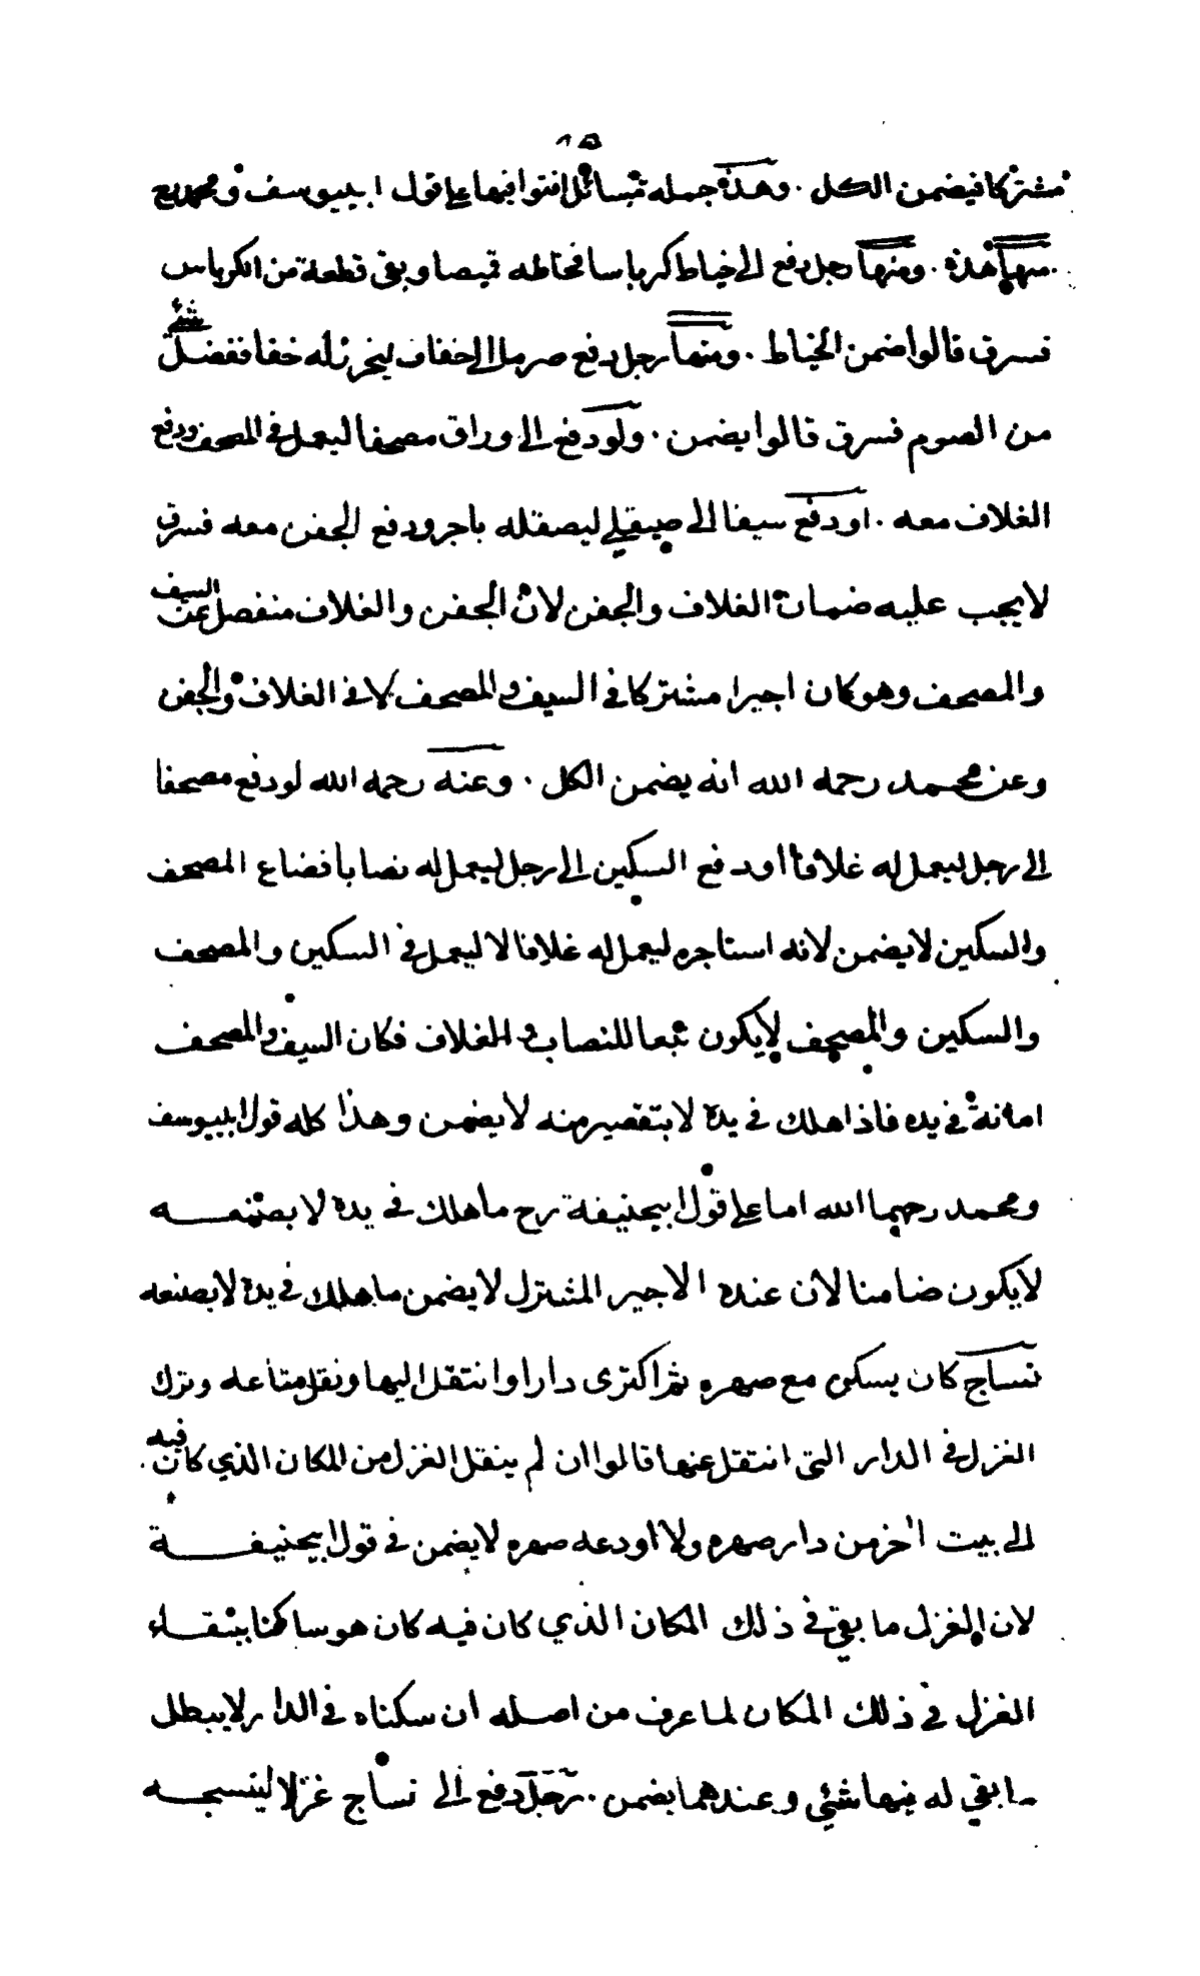 ١٥
مشتركا فيضمن الكل . وهذه جمله مسائل افتوا فيها على قول ابييوسف ومحمد رح
منها هذه . ومنها رجل دفع الى خياط كرباسا فخاطه قميصا وبقى قطعة من الكرباس
فسرق قالوا ضمن الخياط . ومنها رجل دفع صرما الى خفاف ليخرز له خفا ففضل شئ
من الصرم فسرق قالوا يضمن . ولو دفع الى وراق مصحفا ليعمل فى المصحف ودفع
الغلاف معه . او دفع سيفا الى صيقلي ليصقله باجر ودفع الجفن معه فسرق
لا يجب عليه ضمان الغلاف والجفن لان الجفن والغلاف منفصل عن السيف
والمصحف وهو كان اجيرا مشتركا فى السيف والمصحف لا فى الغلاف والجفن
وعن محمد رحمه الله انه يضمن الكل . وعنه رحمه الله لو دفع مصحفا
الى رجل ليعمل له غلافا او دفع السكين الى رجل ليعمل له نصابا فضاع المصحف
والسكين لا يضمن لانه استاجره ليعمل له غلافا لا ليعمل فى السكين والمصحف
والسكين والمصحف لا يكون تبعا للنصاب والغلاف فكان السيف والمصحف
امانة فى يده فاذا هلك فى يده لا بتقصير منه لا يضمن وهذا كله قول ابييوسف
ومحمد رحهما الله اما على قول ابيحنيفة رح ما هلك فى يده لا بصنعه
لا يكون ضامنا لان عنده الاجير المشترك لا يضمن ما هلك فى يده لا بصنعه
نساج كان يسكن مع صهره ثم اكترى دارا وانتقل اليها ونقل متاعه وترك
الغزل فى الدار التى انتقل عنها قالوا ان لم ينقل الغزل من المكان الذي كان فيه
الى بيت اخر من دار صهره ولا اودعه صهره لا يضمن فى قول ابيحنيفة
لان الغزل ما بقي فى ذلك المكان الذي كان فيه كان هو ساكنا ببقاء
الغزل فى ذلك المكان لما عرف من اصله ان سكناه فى الدار لا يبطل
ما بقي له فيها شئي وعندهما يضمن . رجل دفع الى نساج غزلا لينسجه